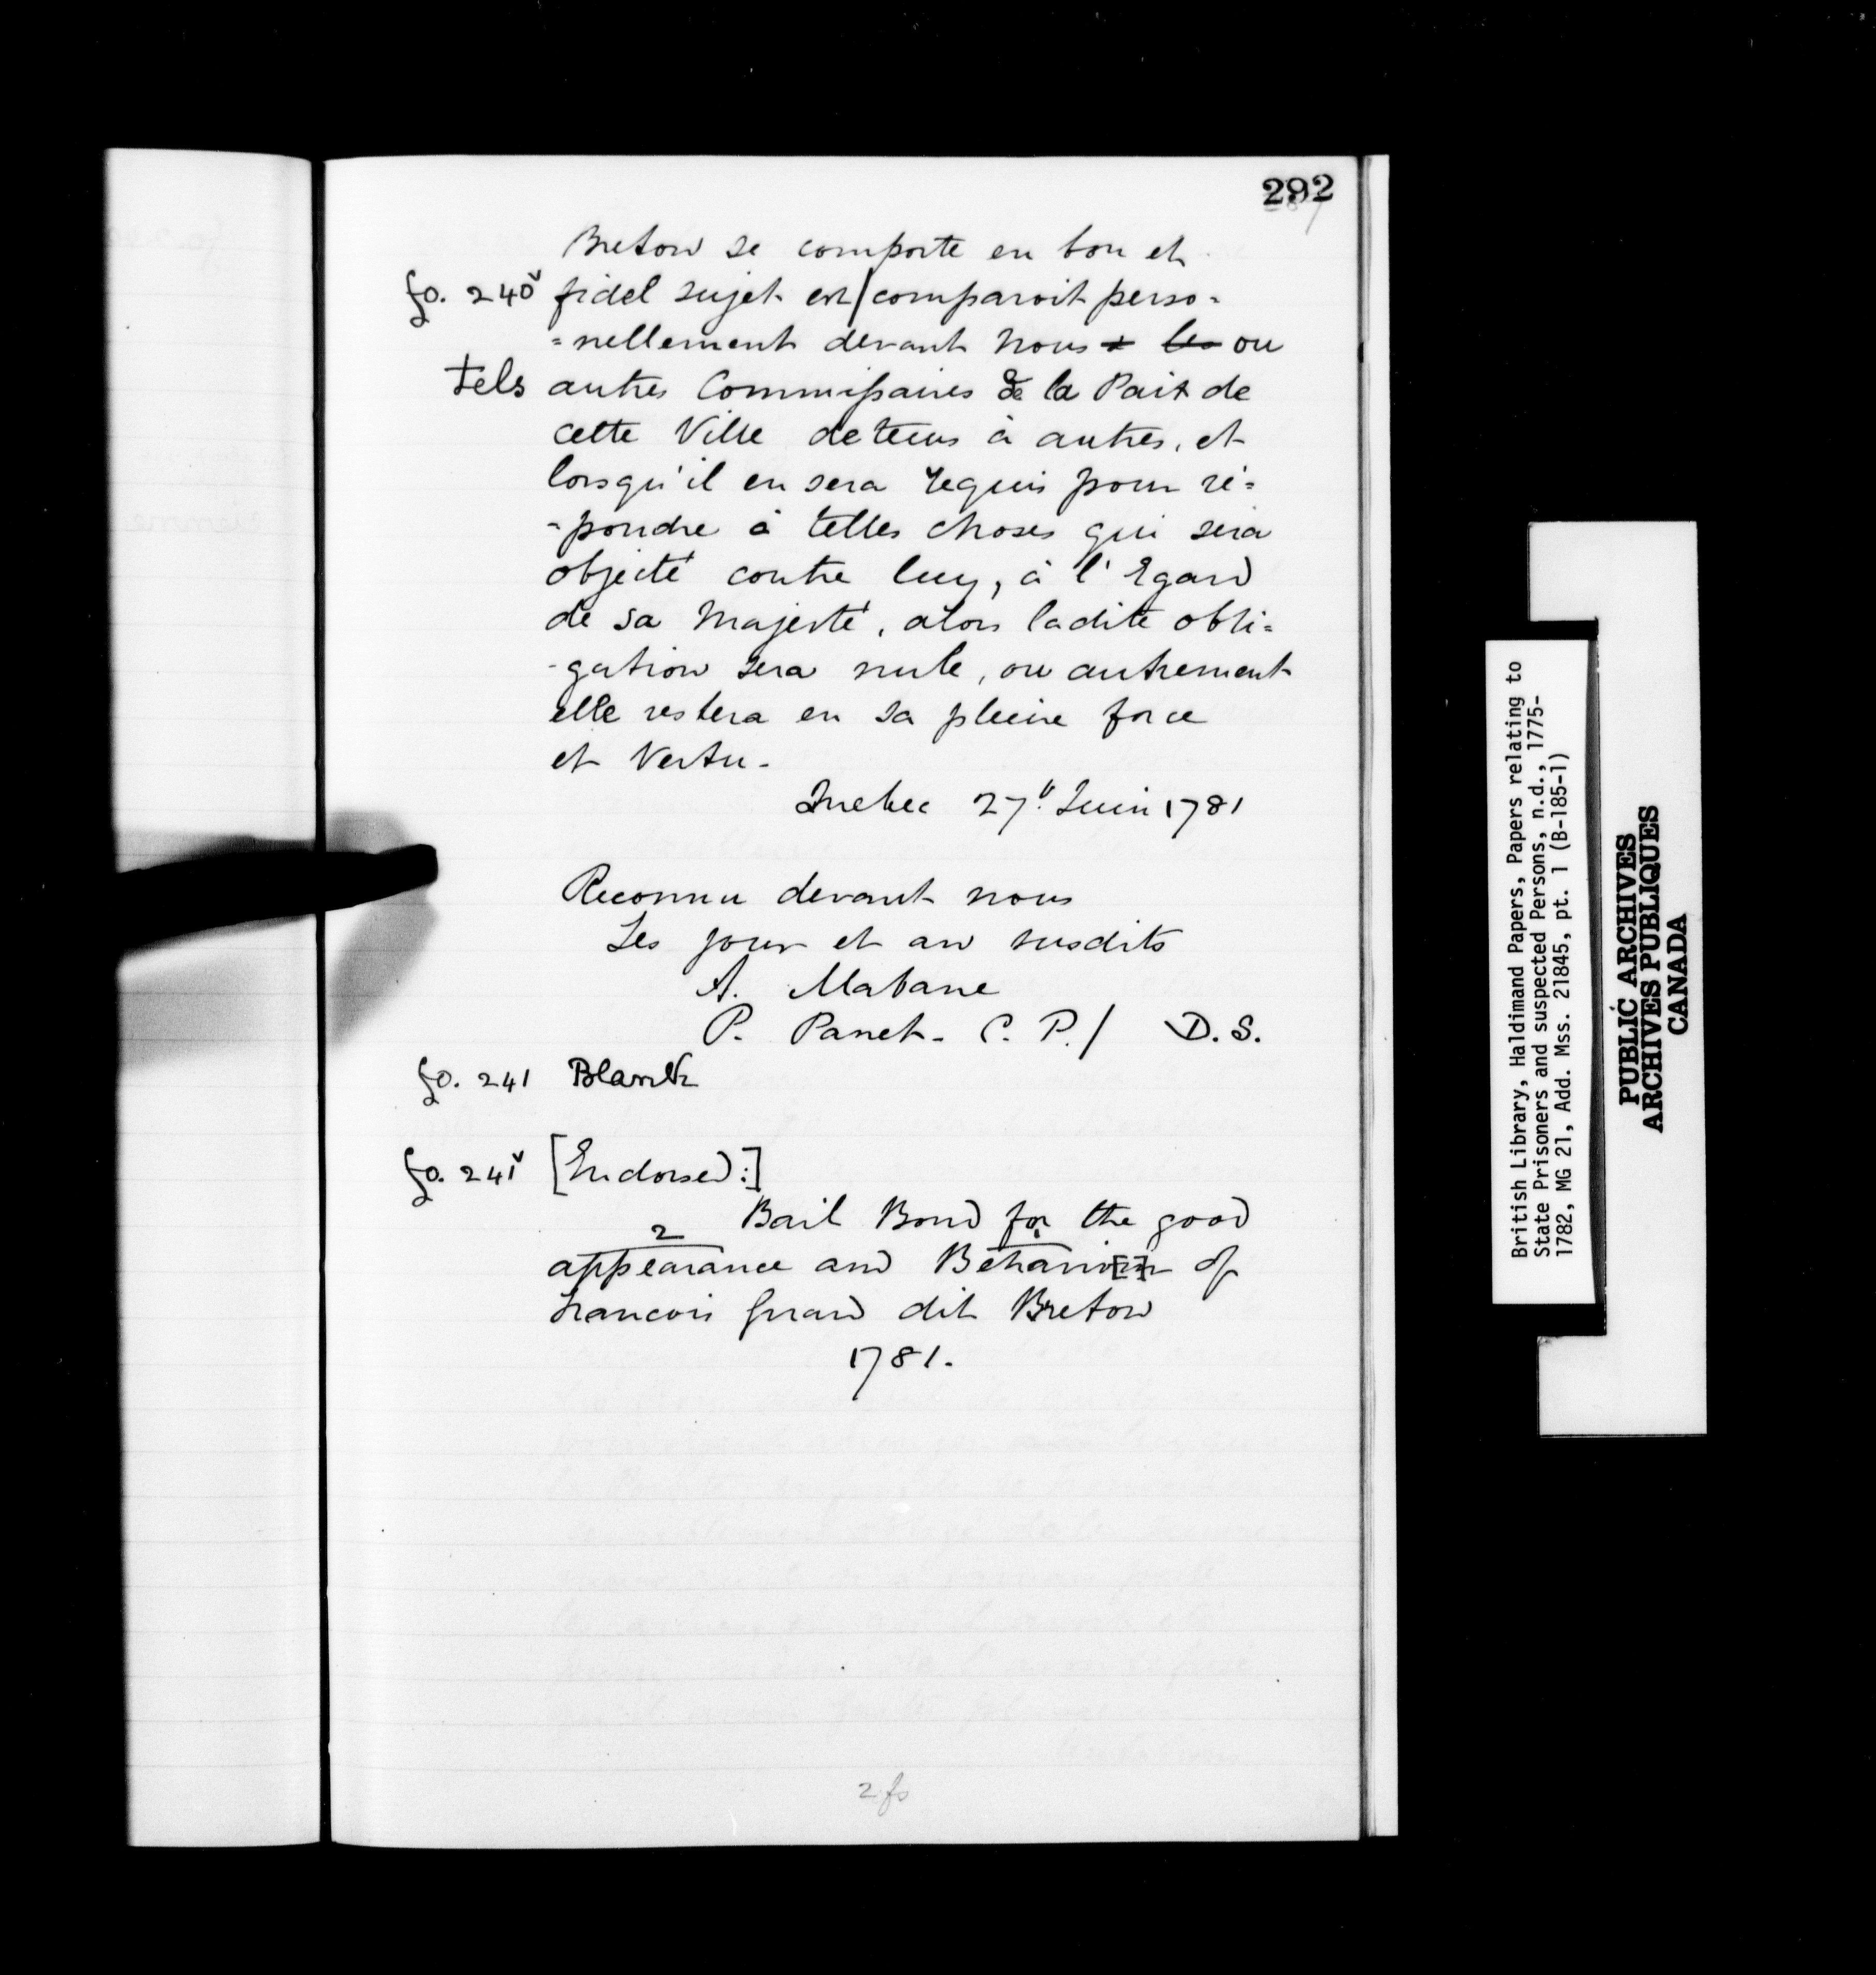 292
Breton se comporte en bon et
fo. 240v fidel sujet et/comparoit perso-
=nellement devant nous ou
tels autres Commissaires de la Paix de
cette Ville de tems à autres, et
lorsqu'il en sera requis pour ré=
-pondre à telles choses qui sera
objecté contre luy, à l'Egard
de sa Majesté, alors ladite obli=
-gation sera nule, ou autrement
elle restera en sa pleine force
et Vertu.
Quebec 27" Juin 1781
Reconnu devant nous
Les jour et an susdits
A. Mabane
P. Panet. C. P./ D.S.
fo. 241 Blank
fo. 241v [Endorsed:]
2 Bail Bond for the good
appearance and Behavior of
Francois Guard dit Breton
1781.
2 fs
British Library, Haldimand Papers, Papers relating to
State Prisoners and suspected Persons, n.d., 1775-
1782, MG 21, Add. Mss. 21845, pt. 1 (B-185-1)
PUBLIC ARCHIVES
ARCHIVES PUBLIQUES
CANADA